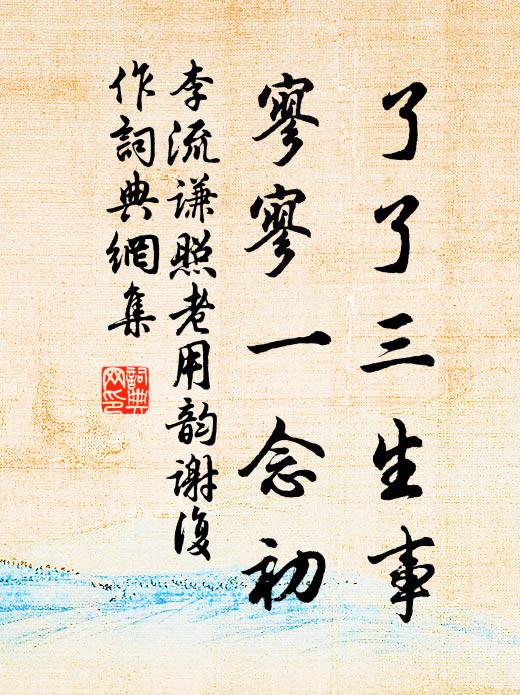 了了三生事
寥寥一念初
李流谦照老用韵谢复
作詞典網集
詞典
网印